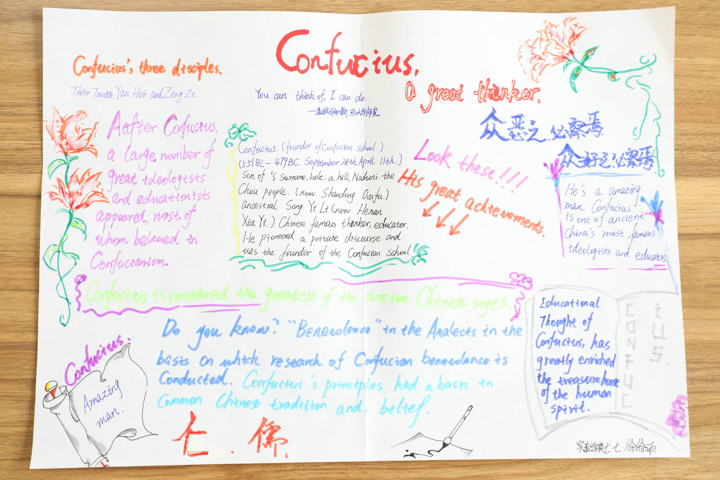 Confucius,
A great thinker.
Confucius's three disciples.
Their Tands, Yan Hui and Zeng Zi.
You can think of, I can do.
众恶之必察焉
众好之必察焉
After Confucius,
a large number of
great ideologists
and educationists
appeared, most of
whom believed in
Confucianism.
Confucius. (founder of Confucian school.)
(551BC-479BC September 28th April 11th.)
Son of 's surname, hide. a hill, Nadoni. the
Chou people. (now Shandong Qufu)
ancestral Song Yi Li (now Henan
Xia Yi.) Chinese famous thinker, educator.
He pioneered a private discourse and
was the founder of the Confucian school!
Look these!!!
His great achievements.
He's a amazing
man. Confucius
is one of ancient
China's most famous
ideologists and educators
Confucius is considered the greatest of the ancient Chinese sages.
Do you know? "Benevolence" in the Analects in the
basis on which research of Confucian benevolence is
Conducted. Confucius's principles had a basis in
Common Chinese tradition and belief.
仁.儒.
Confucius.
Amazing
man.
Educational
Thought of
Confucius, has
greatly enriched
the treasure house
of the human
spirit.
CONFUC
ius.